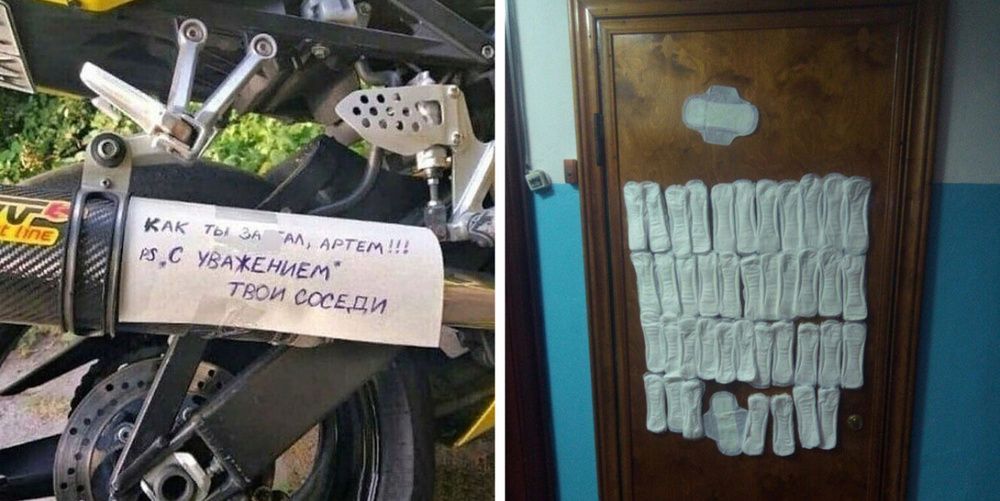 КАК ТЫ ЗА АЛ, АРТЕМ!!!
PS „С УВАЖЕНИЕМ"
ТВОИ СОСЕДИ
line